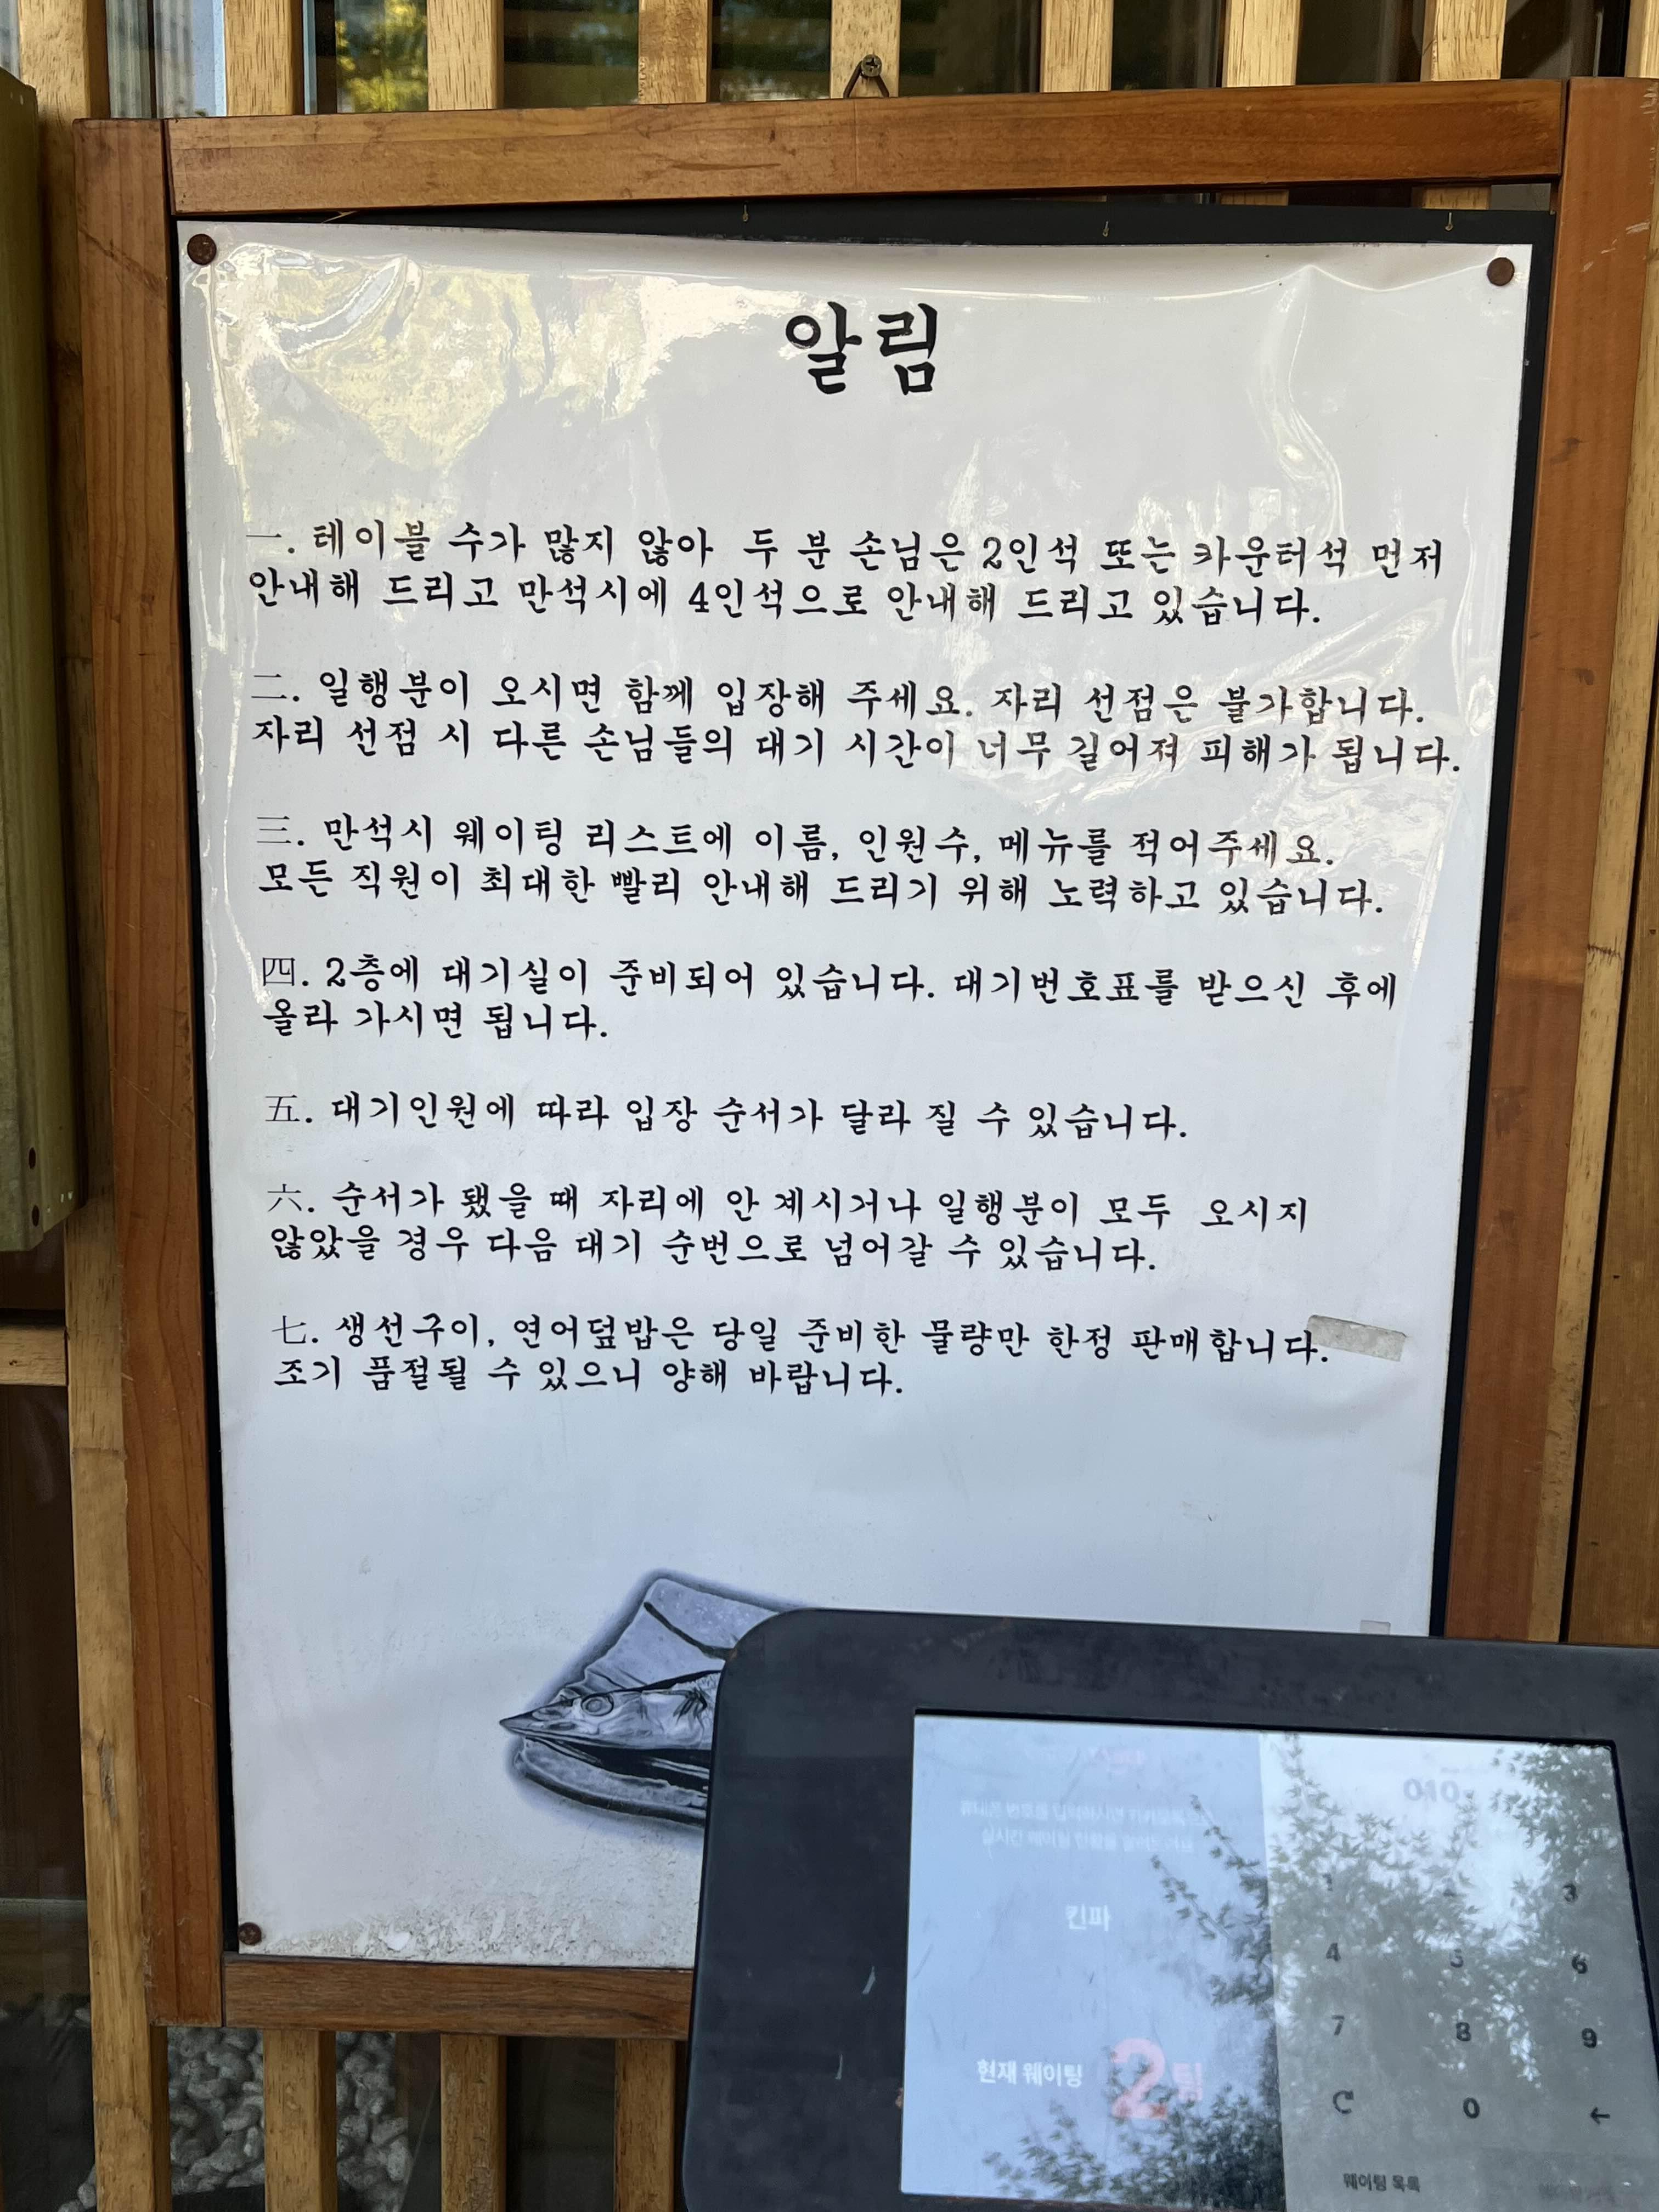 알림
一. 테이블 수가 많지 않아 두 분 손님은 2인석 또는 카운터석 먼저
안내해 드리고 만석시에 4인석으로 안내해 드리고 있습니다.
二. 일행분이 오시면 함께 입장해 주세요. 자리 선점은 불가합니다.
자리 선점 시 다른 손님들의 대기 시간이 너무 길어져 피해가 됩니다.
三. 만석시 웨이팅 리스트에 이름, 인원수, 메뉴를 적어주세요.
모든 직원이 최대한 빨리 안내해 드리기 위해 노력하고 있습니다.
四. 2층에 대기실이 준비되어 있습니다. 대기번호표를 받으신 후에
올라 가시면 됩니다.
五. 대기인원에 따라 입장 순서가 달라 질 수 있습니다.
六. 순서가 됐을 때 자리에 안 계시거나 일행분이 모두 오시지
않았을 경우 다음 대기 순번으로 넘어갈 수 있습니다.
七. 생선구이, 연어덮밥은 당일 준비한 물량만 한정 판매합니다.
조기 품절될 수 있으니 양해 바랍니다.
010
킨파
현재 웨이팅 2팀
1 3
4 5 6
7 8 9
0 ←
웨이팅 목록